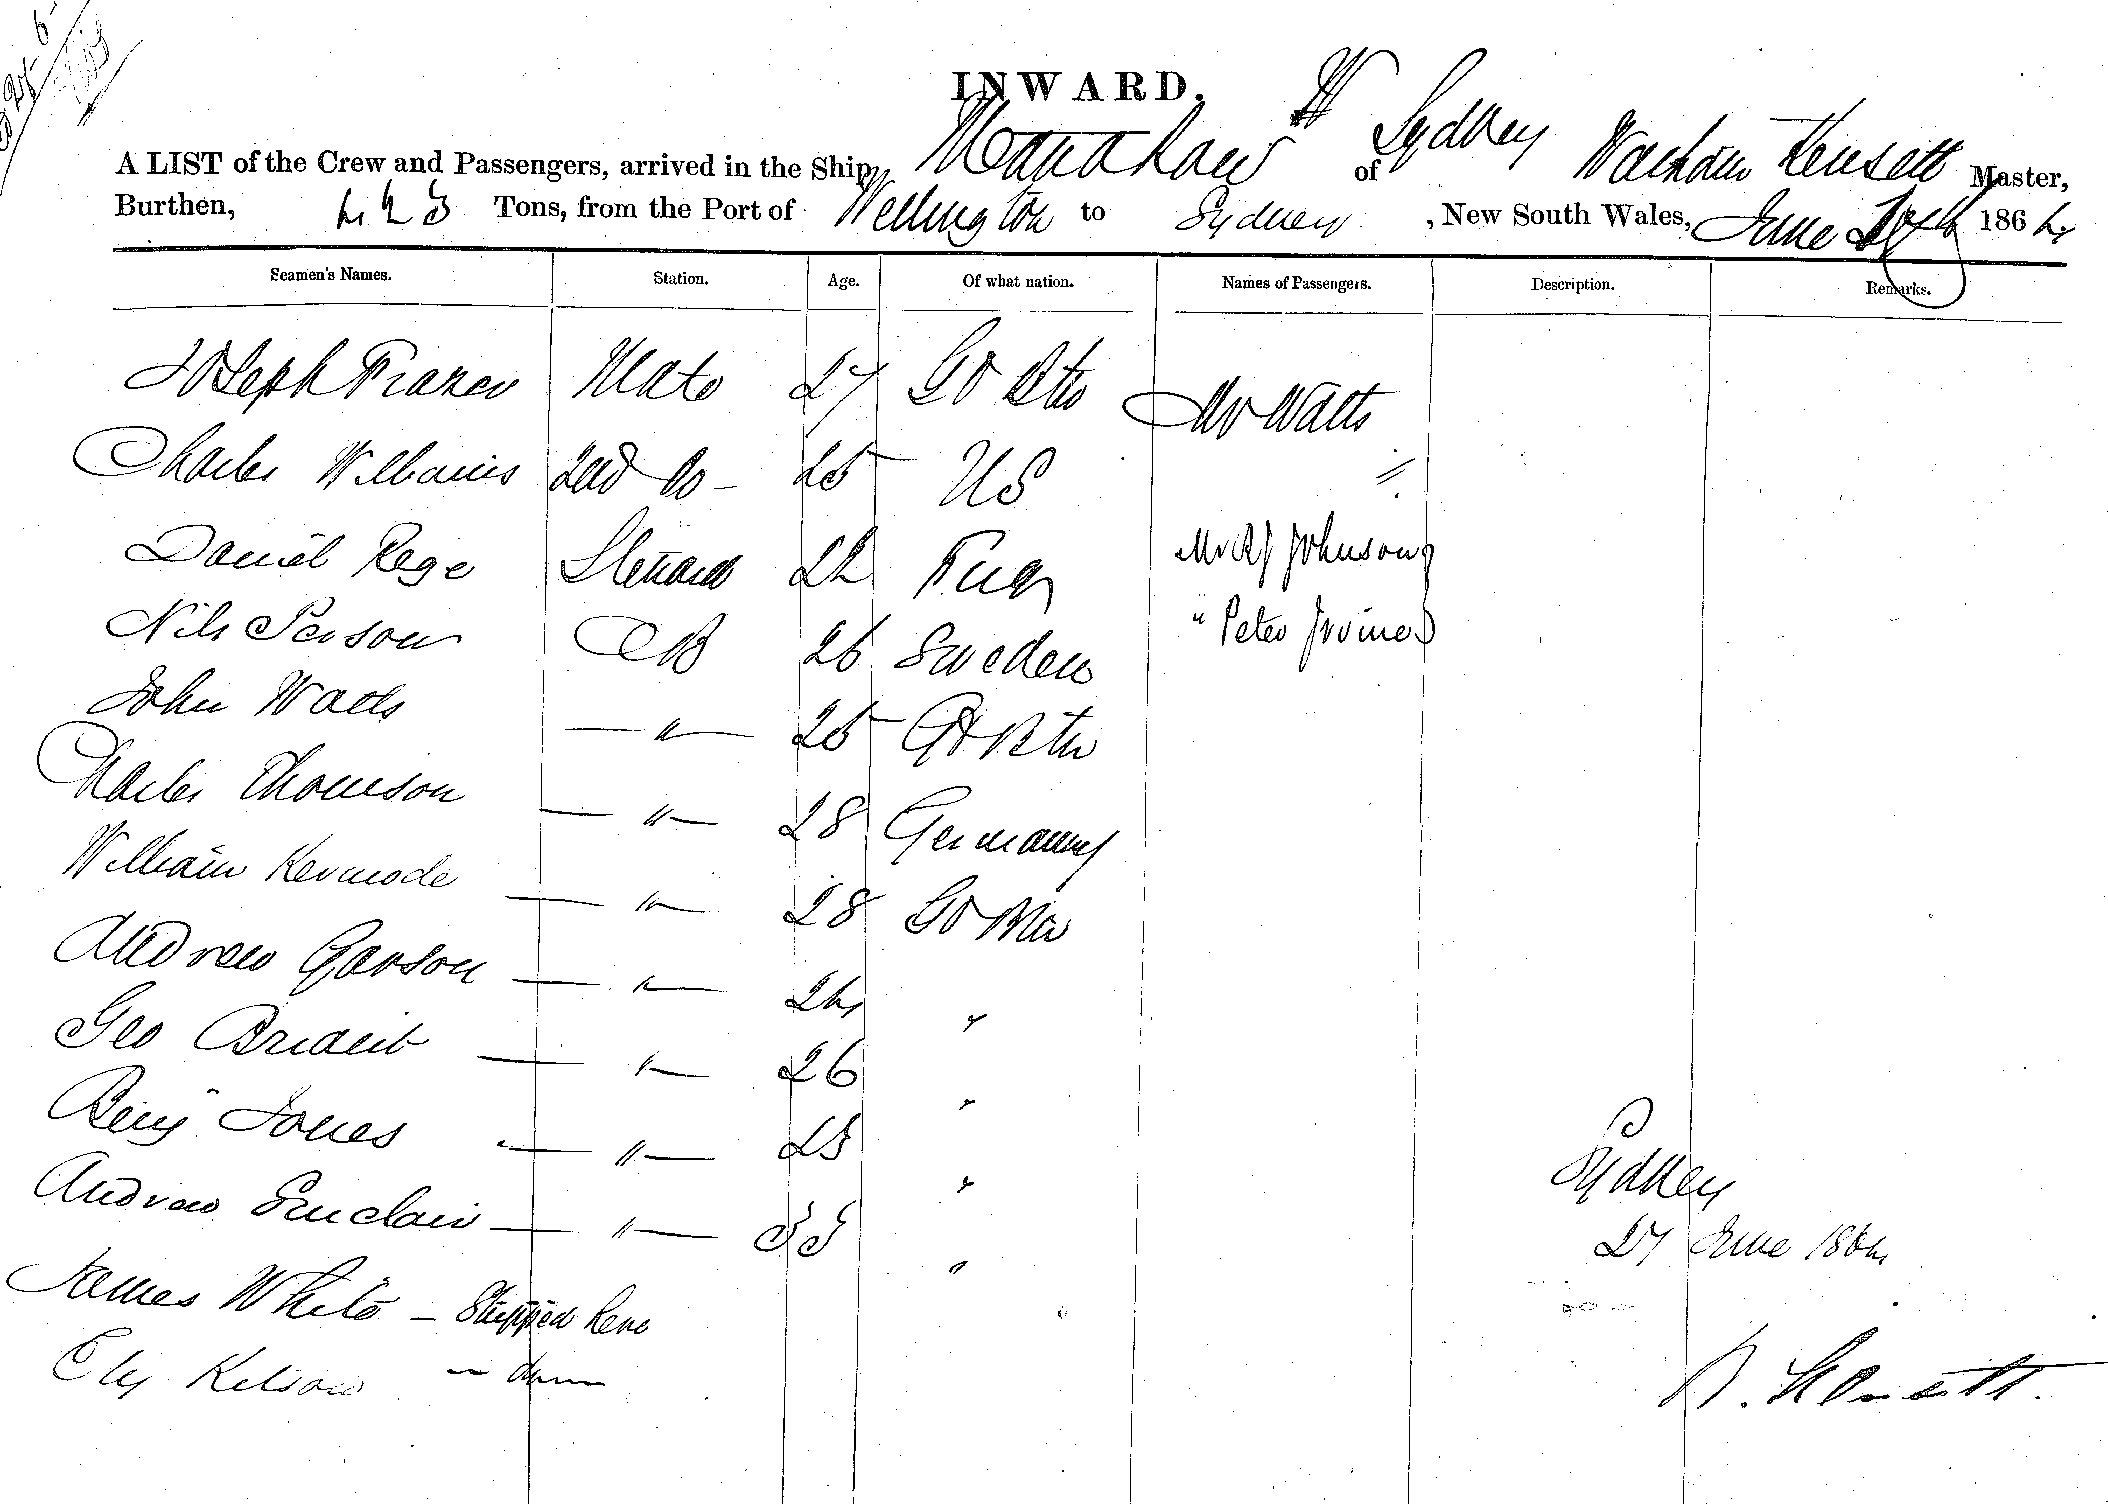 INWARD.
A LIST of the Crew and Passengers, arrived in the Ship, of Sydney Kensett Master,
Burthen, 423 Tons, from the Port of Wellington to Sydney, New South Wales, June 27th 1864
Seamen's Names. Station. Age. Of what nation. Names of Passengers. Description. Remarks.
Joseph Frazer Mate 27 Gt Btn Mr Watts
Charles Williams 2nd Do - 25 US "
Daniel Rege Steward 22 Mr R J Johnson
Nils Person AB 26 Sweden " Peter Irvine
John Watts — " — 25 Gt Btn
Charles Thomson — " — 28 Germany
William Kermode — " — 28 Gt Btn
Andrew Garson — " — 24 "
Geo Briant — " — 26 "
Benj Jones — " — 23 "
Andrew Sinclair — " — 33 "
James White - Shipped here
Ely Kelson
Sydney
27 June 1864
W. Kensett.